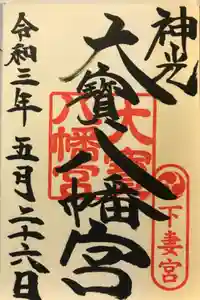 神光
大寶八幡宮
令和三年 五月二十六日
大宝八幡宮
下妻宮